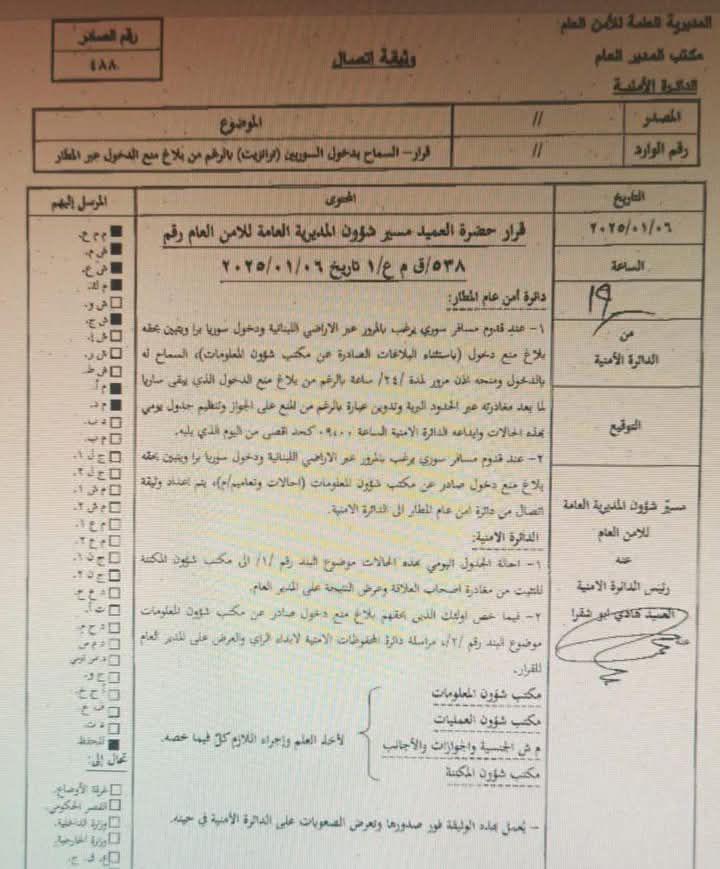 المديرية العامة للأمن العام
مكتب المدير العام
الدائرة الأمنية
وثيقة اتصال
رقم الصادر
٤٨٨
المصدر // الموضوع
رقم الوارد // قرار- السماح بدخول السوريين (ترانزيت) بالرغم من بلاغ منع الدخول عبر المطار
التاريخ
٢٠٢٥/٠١/٠٦
الساعة
١٩
من
الدائرة الأمنية
التوقيع
مسيّر شؤون المديرية العامة
للامن العام
عنه
رئيس الدائرة الامنية
العميد هادي ابو شقرا
عنه
المحتوى
قرار حضرة العميد مسير شؤون المديرية العامة للامن العام رقم
٥٣٨/ق م ع/١ تاريخ ٢٠٢٥/٠١/٠٦
دائرة أمن عام المطار:
١- عند قدوم مسافر سوري يرغب بالمرور عبر الاراضي اللبنانية ودخول سوريا برا ويتبين بحقه
بلاغ منع دخول (باستثناء البلاغات الصادرة عن مكتب شؤون المعلومات)، السماح له
بالدخول ومنحه اذن مرور لمدة /٢٤/ ساعة بالرغم من بلاغ منع الدخول الذي يبقى ساريا
لما بعد مغادرته عبر الحدود البرية وتدوين عبارة بالرغم من المنع على الجواز وتنظيم جدول يومي
بهذه الحالات وايداعه الدائرة الامنية الساعة ٠٩،٠٠ كحد اقصى من اليوم الذي يليه.
٢- عند قدوم مسافر سوري يرغب بالمرور عبر الاراضي اللبنانية ودخول سوريا برا ويتبين بحقه
بلاغ منع دخول صادر عن مكتب شؤون المعلومات (احالات وتعاميم/م)، يتم اعداد وثيقة
اتصال من دائرة امن عام المطار الى الدائرة الامنية.
الدائرة الامنية:
١- احالة الجدول اليومي بهذه الحالات موضوع البند رقم /١/ الى مكتب شؤون المكننة
للتثبت من مغادرة اصحاب العلاقة وعرض النتيجة على المدير العام.
٢- فيما خص اولئك الذين بحقهم بلاغ منع دخول صادر عن مكتب شؤون المعلومات
موضوع البند رقم /٢/، مراسلة دائرة المحفوظات الامنية لابداء الراي والعرض على المدير العام
للقرار.
مكتب شؤون المعلومات
مكتب شؤون العمليات
م ش الجنسية والجوازات والأجانب
مكتب شؤون المكننة
لأخذ العلم وإجراء اللازم كلّ فيما خصه.
- يُعمل بهذه الوثيقة فور صدورها وتعرض الصعوبات على الدائرة الأمنية في حينه.
المرسل إليهم
م م ع.
ش م.
ش ع.
م ك.
ش و.
ش ج.
ش ر.
ش ط.
م أ.
م د.
د ب.
م ب.
ج ل ١.
ج ل ٢.
م ش ١.
م ش ٢.
م ع ١.
م ع ٢.
ج ن ١.
ج ن ٢.
د ع ح.
ت أ.
د ح م.
د م ص
ج و.
أ ح خ.
ف ع.
د ث.
للحفظ
تحال إلى:
غرفة الأوضاع.
القصر الحكومي.
وزارة الداخلية.
وزارة الخارجية.